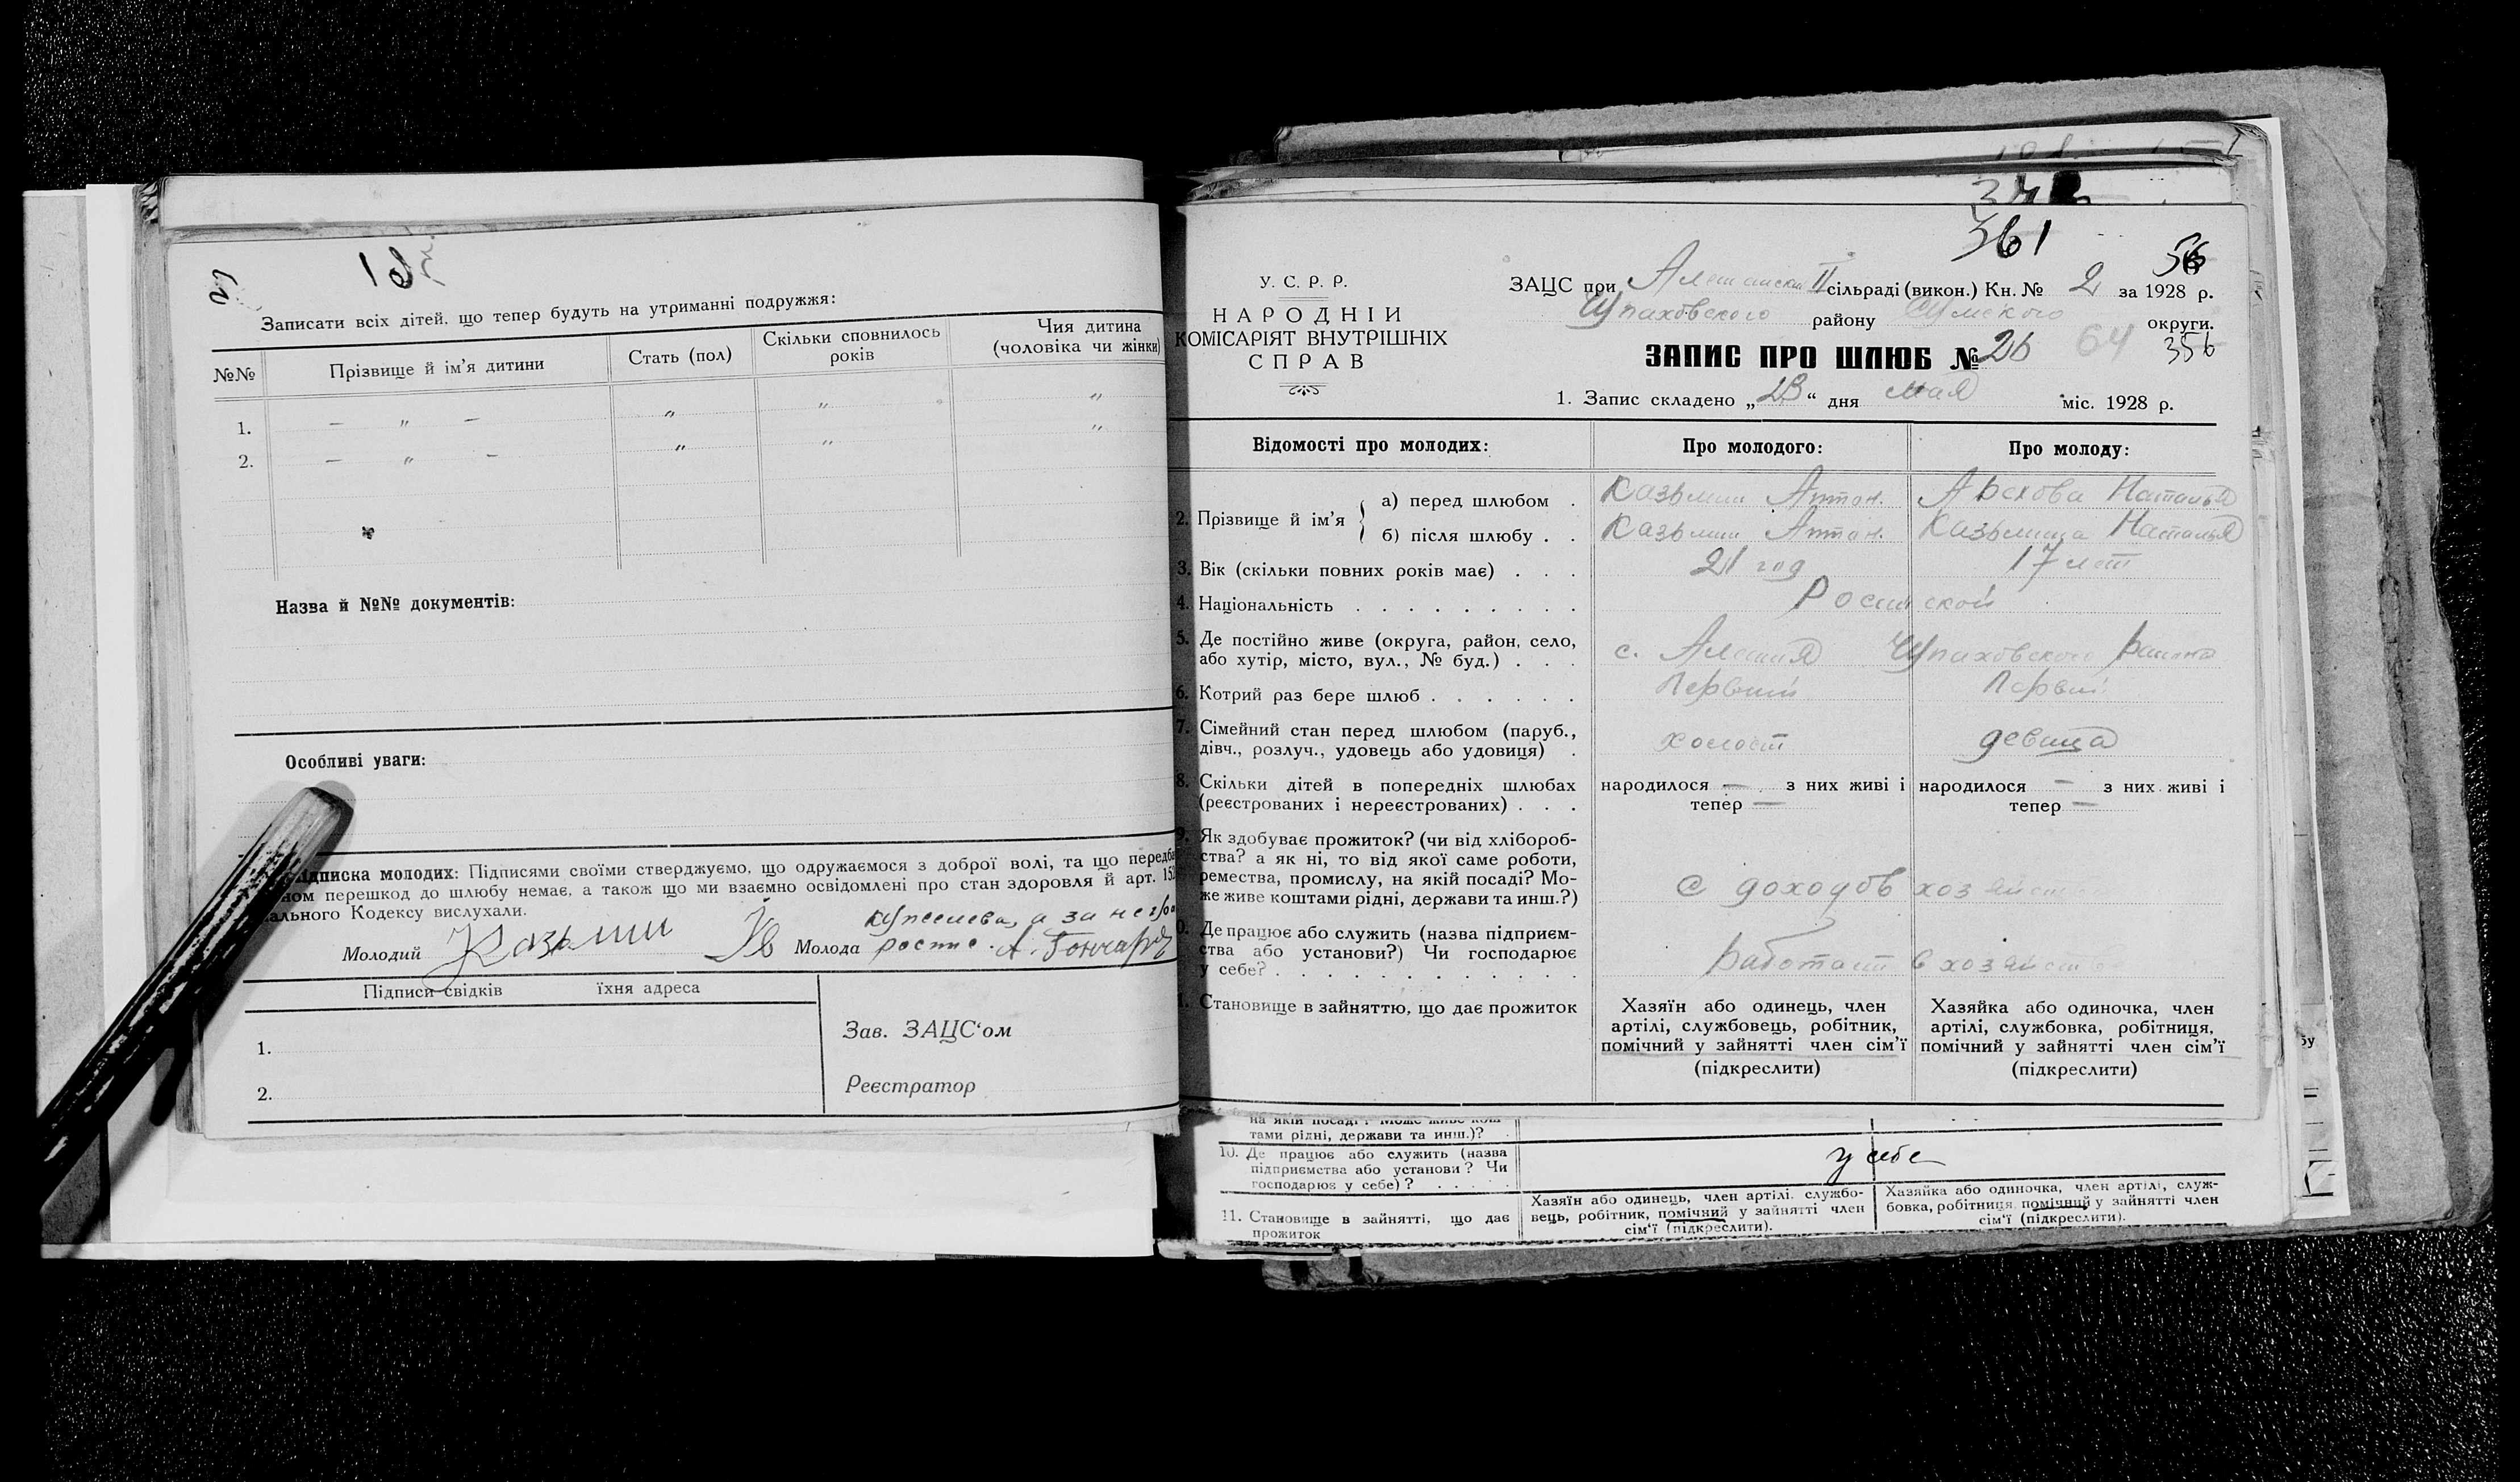 Записати всіх дітей, що тепер будуть на утриманні подружжя:
№№ Прізвище й ім'я дитини Стать (пол) Скільки сповнилось років Чия дитина (чоловіка чи жінки)
1. — " — " " "
2. — " — " " "
Назва й №№ документів:
Особливі уваги:
підписка молодих: Підписями своїми стверджуємо, що одружаємося з доброї волі, та що передба
ном перешкод до шлюбу немає, а також що ми взаємно освідомлені про стан здоровля й арт. 15
ального Кодексу вислухали.
а за негра
Молодий Казьмин Молода роспис. А. Гончаров
Підписи свідків їхня адреса
1.
2.
Зав. ЗАЦС'ом
Реєстратор
361
56
У. С. Р. Р.
НАРОДНІЙ
КОМІСАРІЯТ ВНУТРІШНІХ
СПРАВ
ЗАЦС при II сільраді (викон.) Кн. № 2 за 1928 р.
району Сумского округи.
ЗАПИС ПРО ШЛЮБ № 26 64 356
1. Запис складено „23“ дня мая міс. 1928 р.
Відомості про молодих: Про молодого: Про молоду:
2. Прізвище й ім'я
а) перед шлюбом . Казьмин Антон. Наталья
б) після шлюбу . . Казьмин Антон. Казьмина Наталья
3. Вік (скільки повних років має) . . . 21 год 17 лет
4. Національність . . . . . . . . . Росийской
5. Де постійно живе (округа, район, село,
або хутір, місто, вул., № буд.) . . . с. Алешня района
6. Котрий раз бере шлюб . . . . . . Первий Первий
7. Сімейний стан перед шлюбом (паруб.,
дівч., розлуч., удовець або удовиця) . холост девица
8. Скільки дітей в попередніх шлюбах
(реєстрованих і нереєстрованих) . . .
народилося — . з них живі і тепер —
народилося — з них живі і тепер —
9. Як здобуває прожиток? (чи від хлібороб-
ства? а як ні, то від якої саме роботи,
ремества, промислу, на якій посаді? Мо-
же живе коштами рідні, держави та инш.?)
с доходов хозяйства
Де працює або служить (назва підприєм-
ства або установи?) Чи господарює
у себе? . . . . . . . . . . . .
работает в хозяйстве
Становище в зайняттю, що дає прожиток
Хазяїн або одинець, член
артілі, службовець, робітник,
помічний у зайнятті член сім'ї
(підкреслити)
Хазяйка або одиночка, член
артілі, службовка, робітниця,
помічний у зайнятті член сім'ї
(підкреслити)
на якій посаді? Може живе кош-
тами рідні, держави та инш.)?
10. Де працює або служить (назва
підприємства або установи? Чи
господарює у себе)? . . . . .
у себе
11. Становище в зайнятті, що дає
прожиток
Хазяїн або одинець, член артілі, службо-
вець, робітник, помічний у зайнятті член
сім'ї (підкреслити).
Хазяйка або одиночка, член артілі, служ-
бовка, робітниця, помічний у зайнятті член
сім'ї (підкреслити).